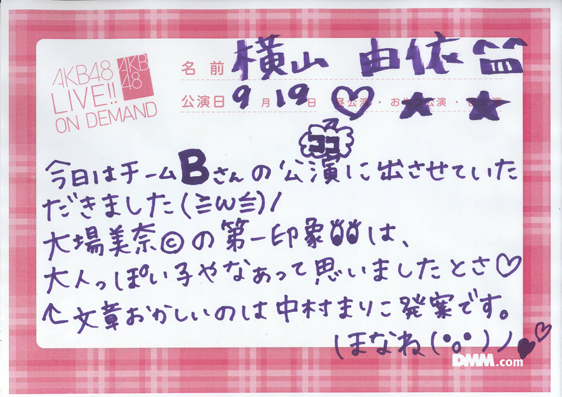 AKB48
LIVE!!
ON DEMAND
AKB
48
名前 横山 由依
公演日 9月19日 昼公演・お 公演・ 公演
ココ
今日はチームBさんの公演に出させていた
だきました(≧ω≦)/
大場美奈©の第一印象は、
大人っぽい子やなあって思いましたとさ♡
↑文章おかしいのは中村まりこ発案です。
ほなね(°o°)ノ
DMM.com